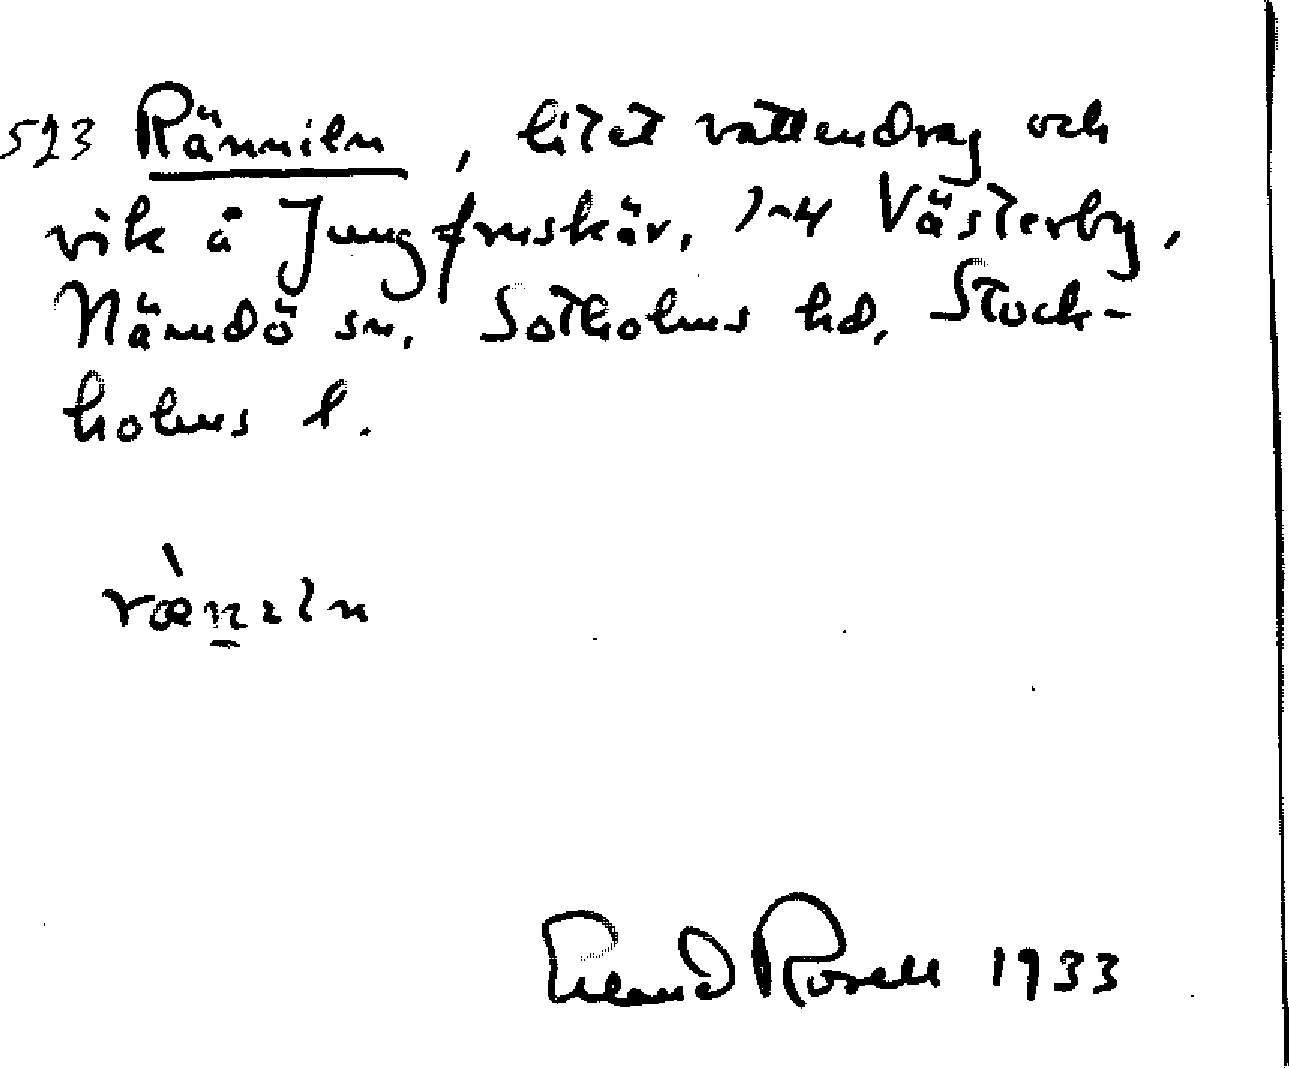 523 Ränniln, litet vattendrag och
vik å Jungfruskär, 1~4 Västerby,
Nämdö sn. Sotholms hd, Stock-
holms l.
ræ̀n̲ıln
Erland Rosell 1933